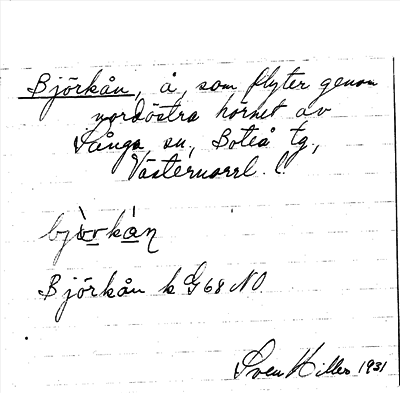 Björkån, å, som flyter genom
nordöstra hörnet av
Sånga sn, Boteå tg,
Västernorrl. l.
bjò̱rkàn
Björkån k G68 NO.
Sven Hillbo 1931